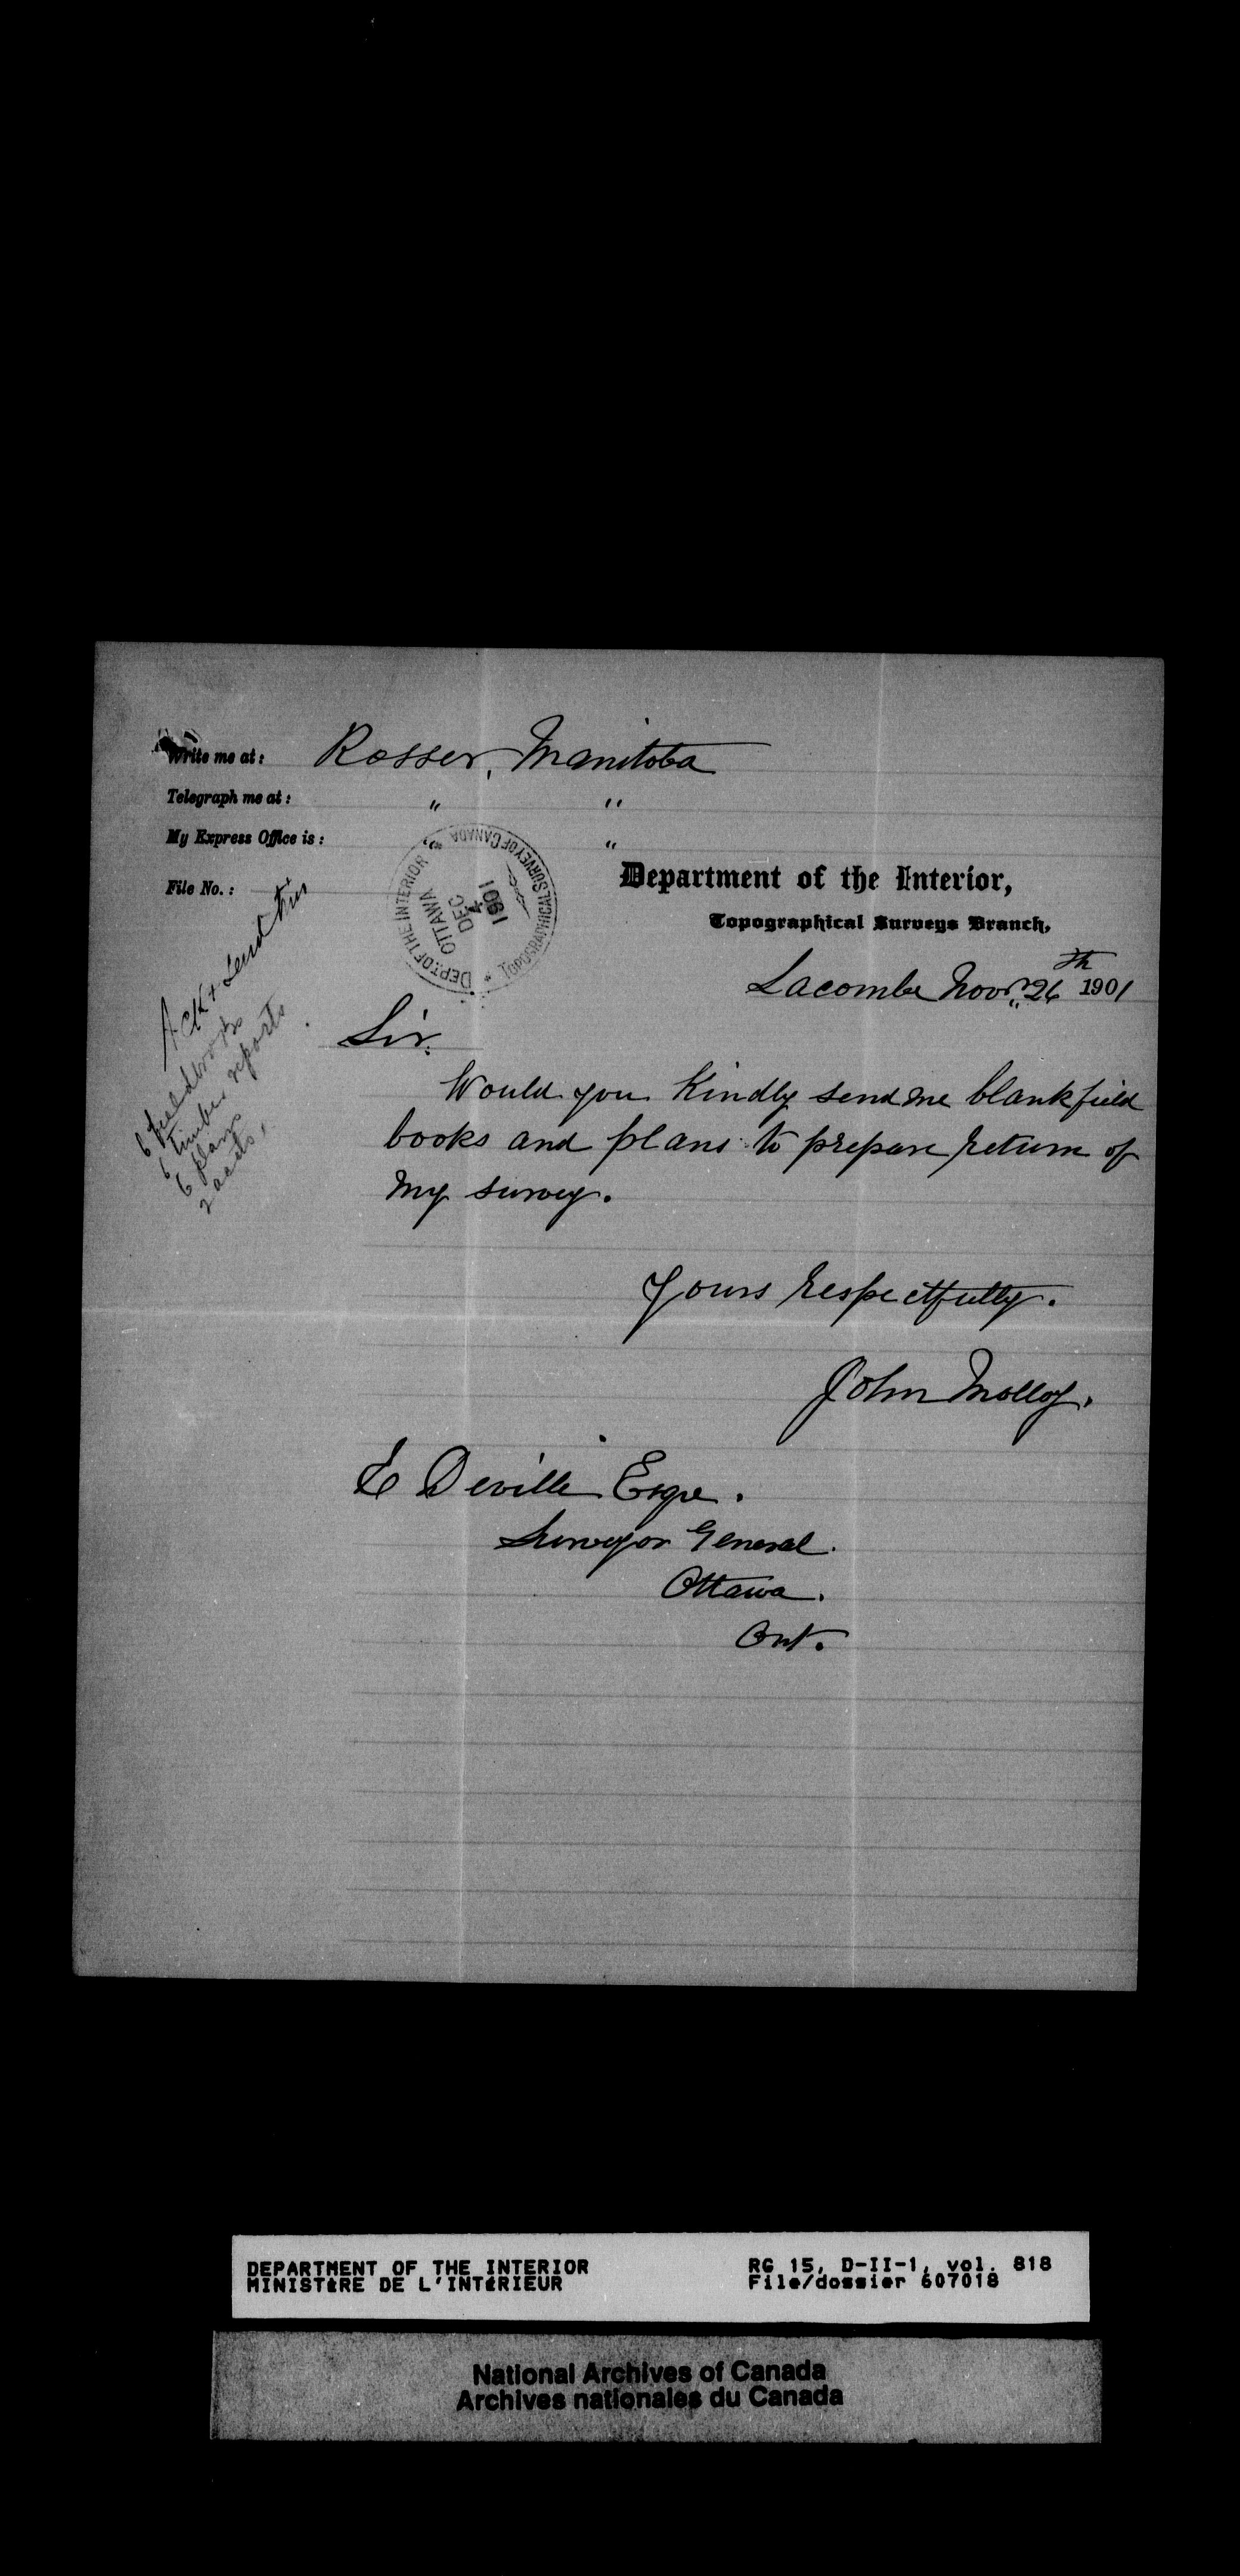 Write me at: Rosser, Manitoba
Telegraph me at: " "
My Express Office is: " "
File No.:
DEPT. OF THE INTERIOR * TOPOGRAPHICAL SURVEY OF CANADA *
OTTAWA
DEC
4
1901
Department of the Interior,
Topographical Surveys Branch,
Lacombe Novr. 26th 1901
Ack & send him
6 fieldbooks
6 timber reports
6 plans
2 accts,
Sir.
Would you Kindly send me blank field
books and plans to prepare return of
my survey.
Yours respectfully.
John Molloy.
E Deville Esqre.
Surveyor General.
Ottawa.
Ont.
DEPARTMENT OF THE INTERIOR RG 15, D-II-1, vol. 818
MINISTÈRE DE L'INTÉRIEUR File/dossier 607018
National Archives of Canada
Archives nationales du Canada